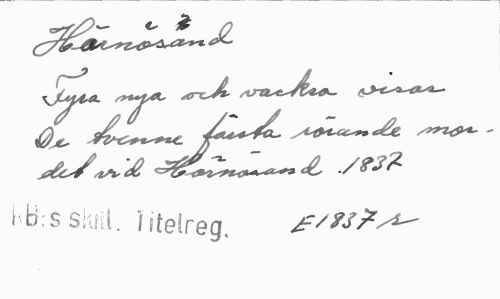 Härnösand
Fyra nya och vackra visor
De tvenne första rörande mor-
det vid Hörnösand. 1837
KB:s skill. Titelreg.
E 1837 r